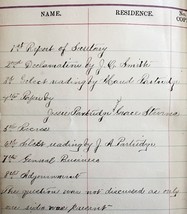 NAME. RESIDENCE.
1st Report of Secretary
2nd Declamation by J. C. Smith
3rd Select reading by Maud Partridge
4th Paper by
Jessie Partridge & Grace Stevens
5th Recess
6th Select reading by J. A. Partridge
7th General Business
8th Adjournment
The questions were not discussed as only
one was present